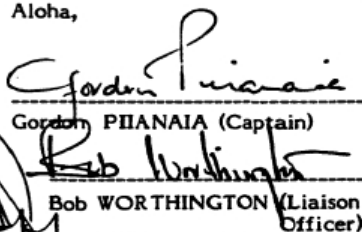 Aloha,
Gordon Piianaia
Gordon PIIANAIA (Captain)
Bob Worthington
Bob WORTHINGTON (Liaison
Officer)